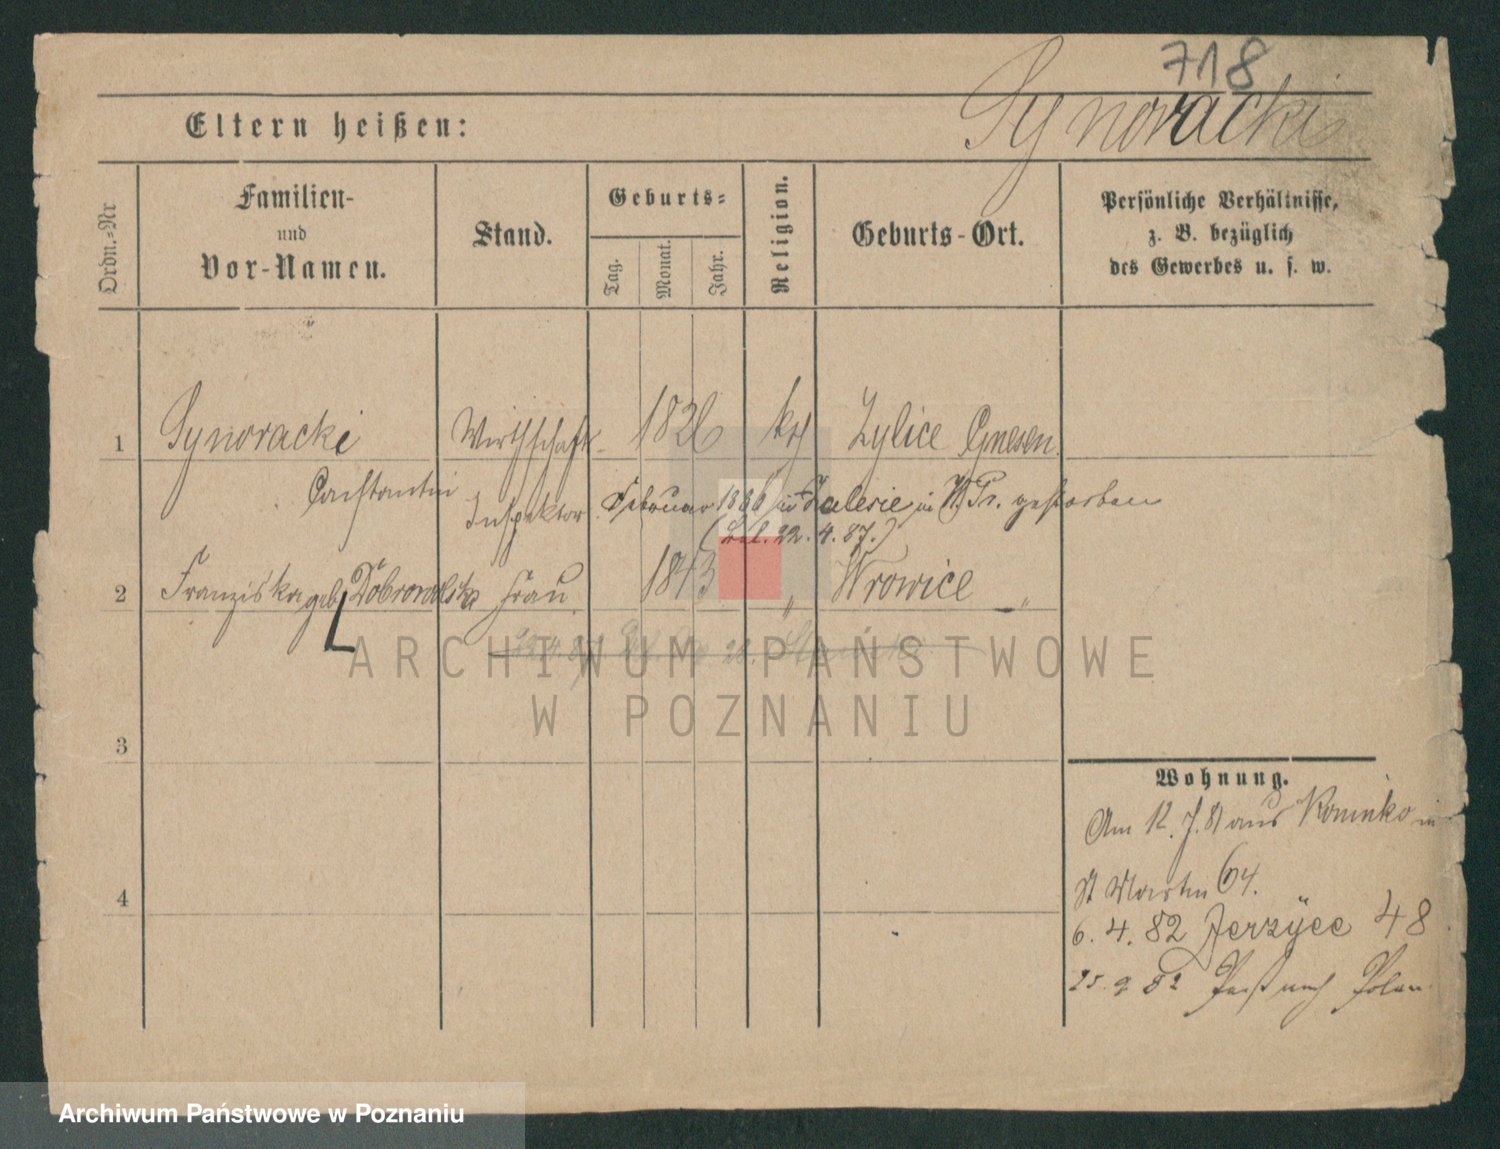 718
Synoracki
Eltern heißen:
Ordn.-Nr
Familien-
und
Vor-Namen.
Stand.
Geburts-
Tag.
Monat.
Jahr.
Religion.
Geburts-Ort.
Persönliche Verhältnisse,
z. B. bezüglich
des Gewerbes u. s. w.
1 Synoracki Wirthschaft- 1826 kth Zylice Gnesen.
Constantin Inspektor Februar 1886 in Zalesie in W. Pr. gestorben
22.4.87.)
2 Franziska geb Dobrowolska Frau. 1843 " Wrowice — "
ARCHIWUM PAŃSTWOWE
W POZNANIU
3
Wohnung.
Am 12.7.81 aus Kominko in
St Martin 64.
4
6.4.82 Jerzyce 48
25.9.82 Paß nach Polen
Archiwum Państwowe w Poznaniu